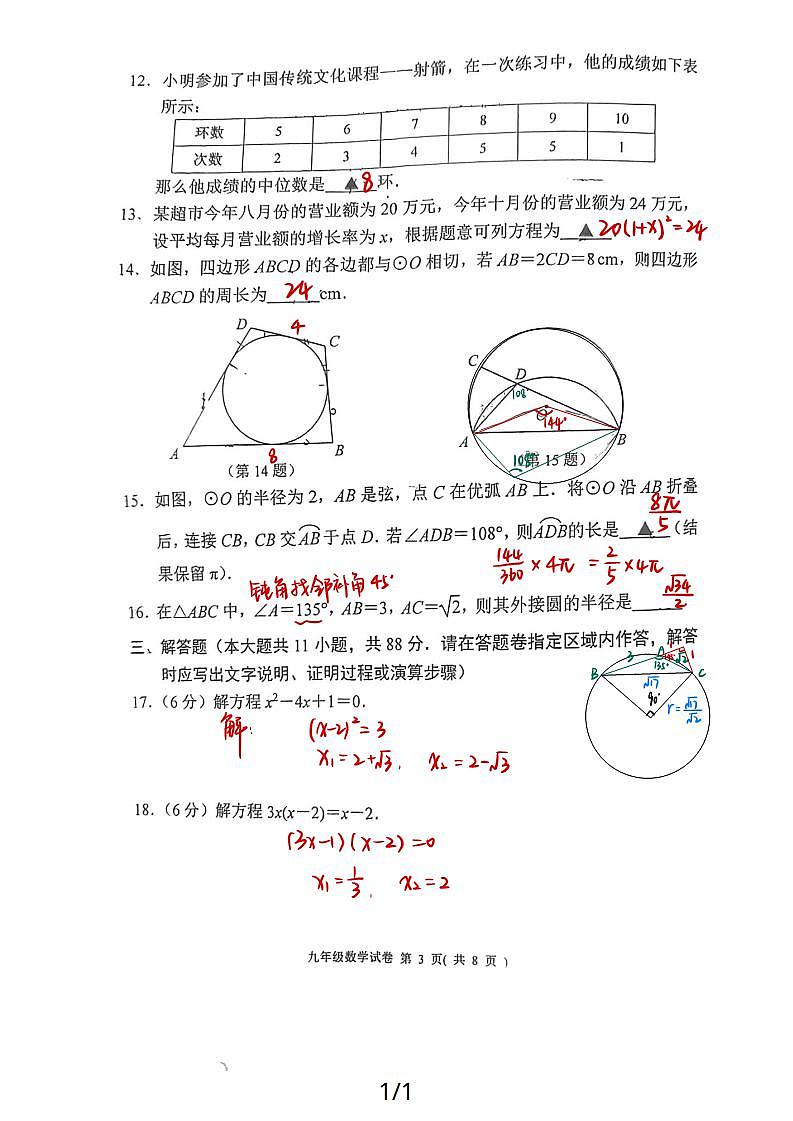 12. 小明参加了中国传统文化课程——射箭，在一次练习中，他的成绩如下表
所示：
环数 5 6 7 8 9 10
次数 2 3 4 5 5 1
那么他成绩的中位数是 ▲ 8 环.
13. 某超市今年八月份的营业额为20万元，今年十月份的营业额为24万元，
设平均每月营业额的增长率为x，根据题意可列方程为 ▲ 20(1+x)²=24
14. 如图，四边形ABCD的各边都与⊙O相切，若AB=2CD=8cm，则四边形
ABCD的周长为 24 cm.
D 4 C
A 8 B
（第14题）
C D
108°
O
144°
A B
108°
（第15题）
15. 如图，⊙O的半径为2，AB是弦，点C在优弧AB上．将⊙O沿AB折叠
后，连接CB，CB交AB于点D．若∠ADB=108°，则ADB的长是 ▲ 8π/5 （结
果保留π）.
144/360 × 4π = 2/5 × 4π
钝角找邻补角45°
16. 在△ABC中，∠A=135°，AB=3，AC=√2，则其外接圆的半径是 √34/2
三、解答题（本大题共11小题，共88分．请在答题卷指定区域内作答，解答
时应写出文字说明、证明过程或演算步骤）
3 A √2 1
B 135° C
√17
90° r=√17/√2
17.（6分）解方程 x²－4x＋1＝0.
解: (x-2)²=3
x₁=2+√3, x₂=2-√3
18.（6分）解方程 3x(x－2)＝x－2.
(3x-1)(x-2)=0
x₁=1/3, x₂=2
九年级数学试卷 第 3 页( 共 8 页 )
1/1